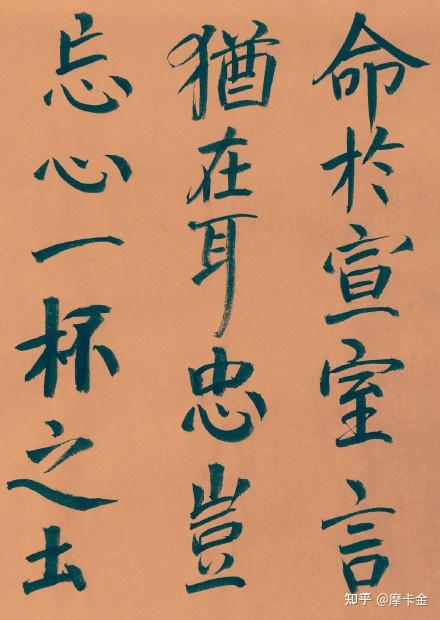 命於宣室言
猶在耳忠豈
忘心一杯之土
知乎 @摩卡金